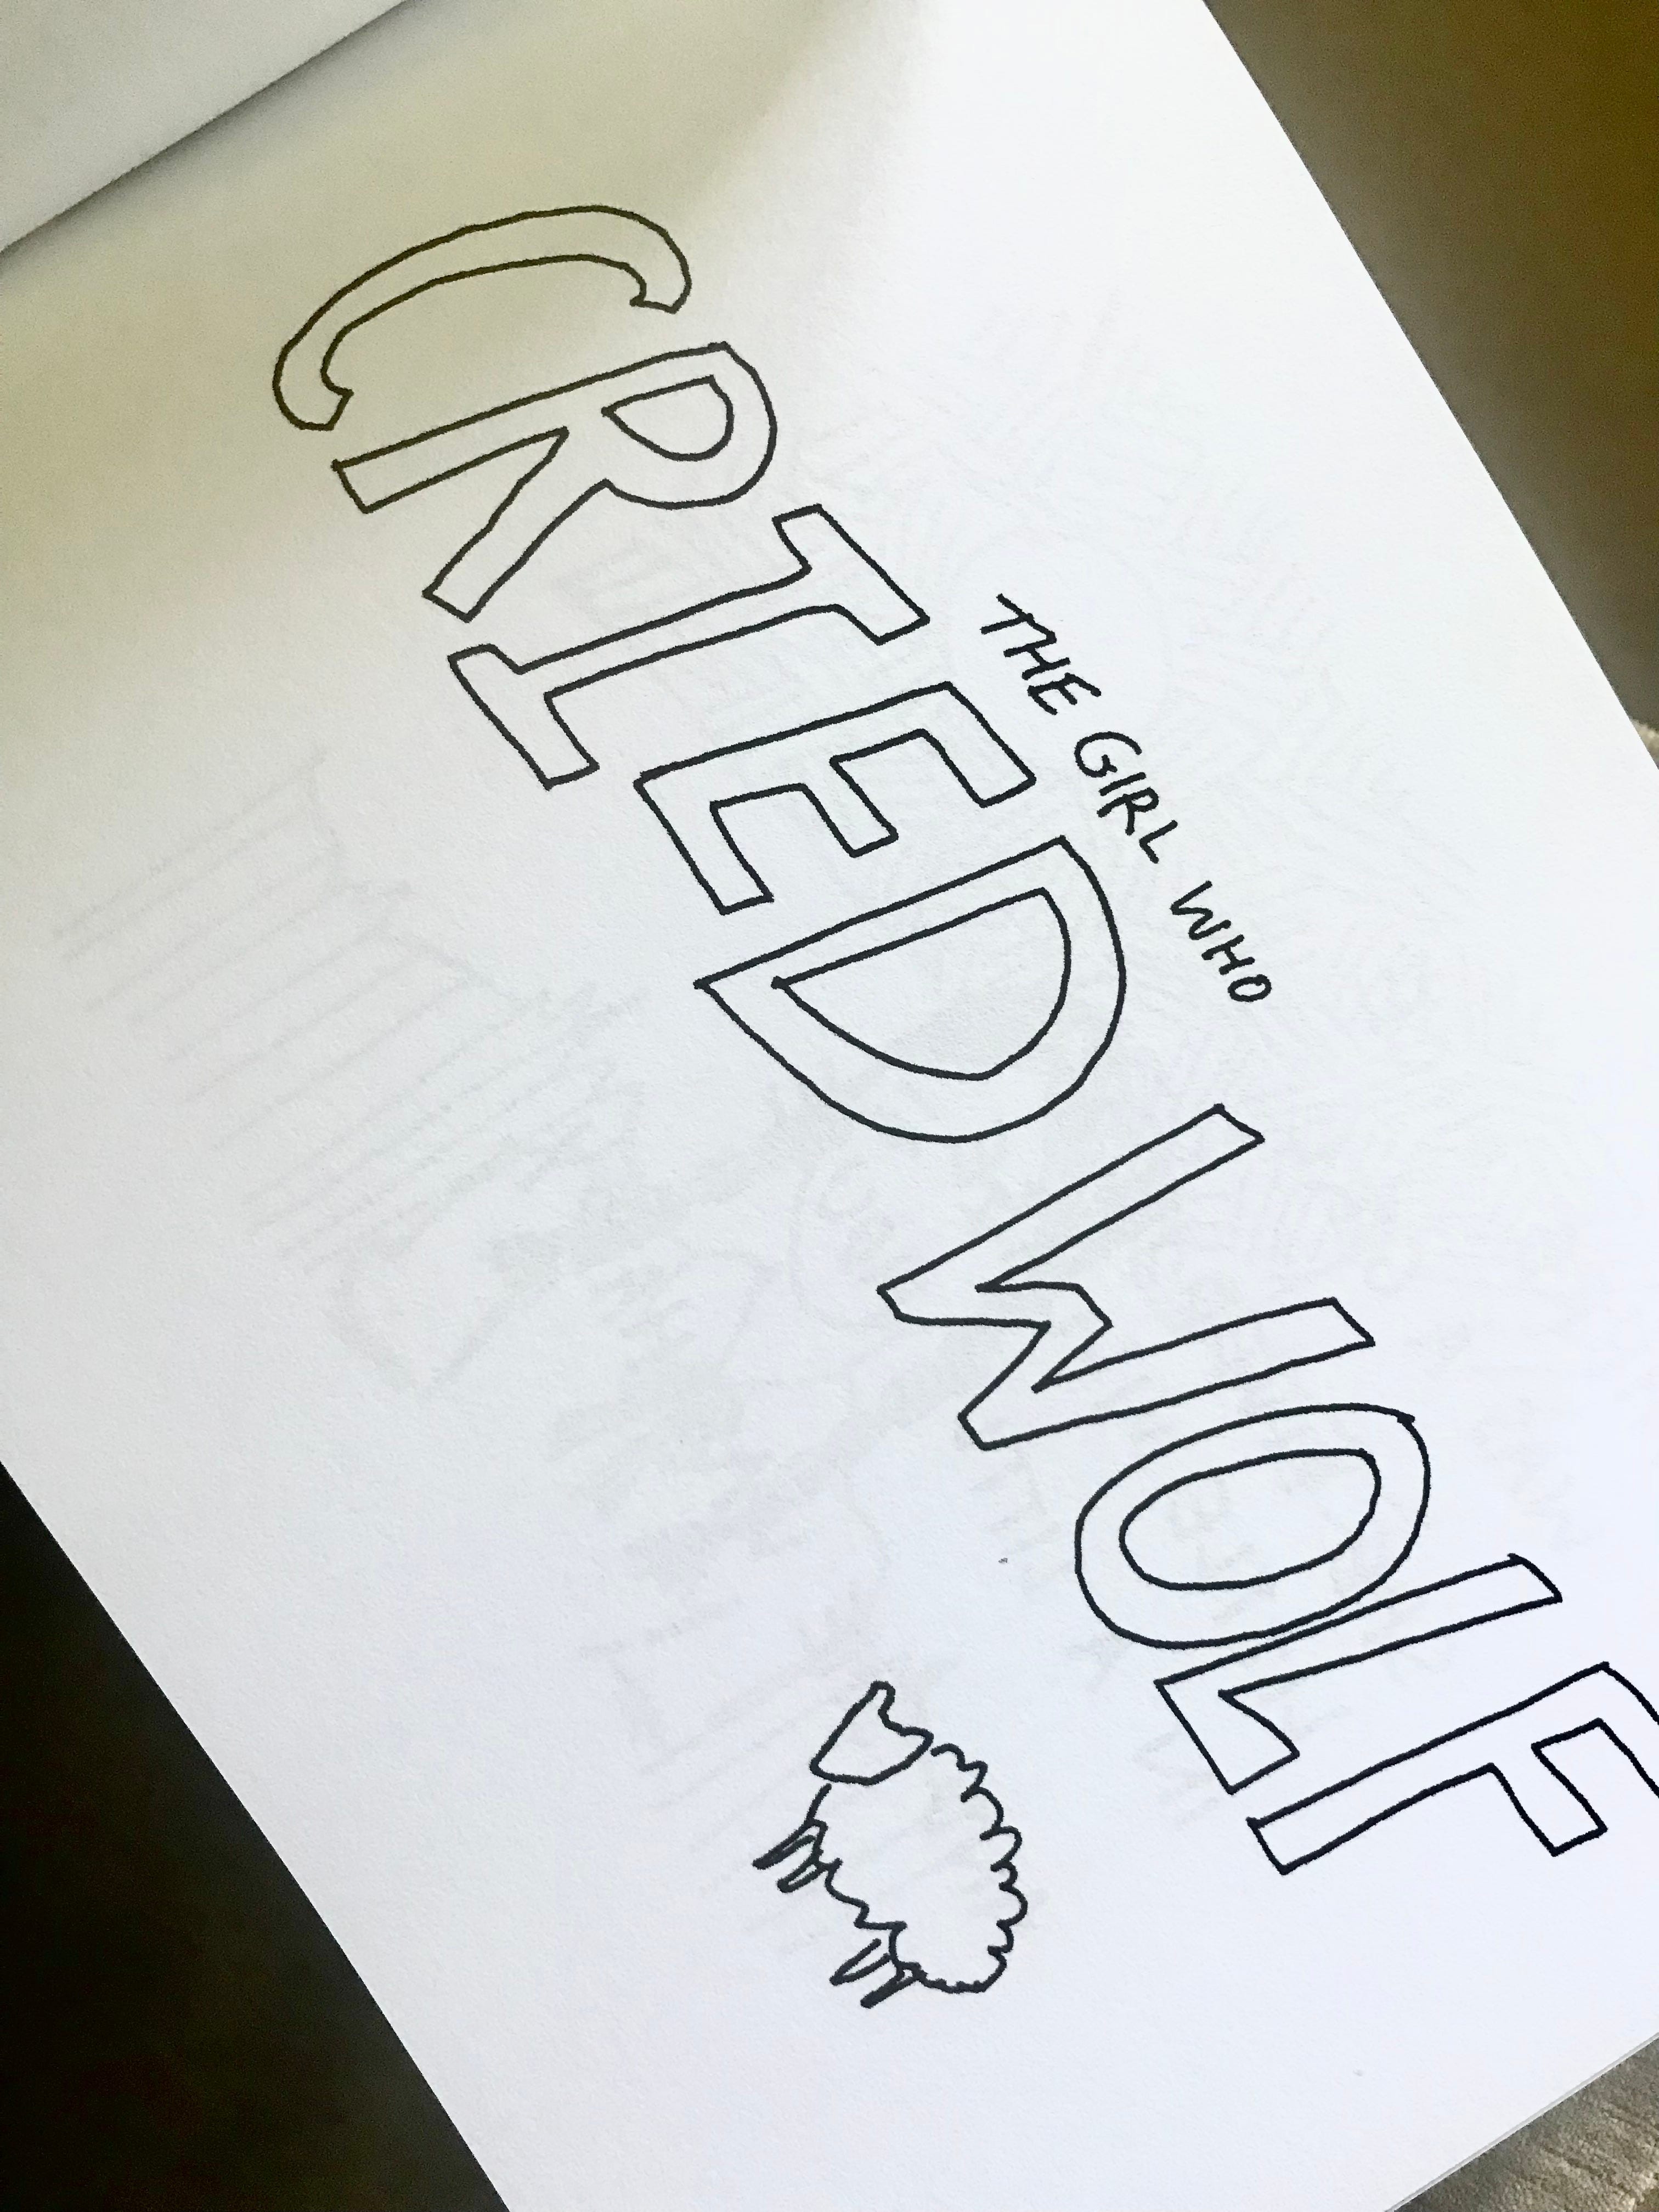 THE GIRL WHO
CRIED WOLF